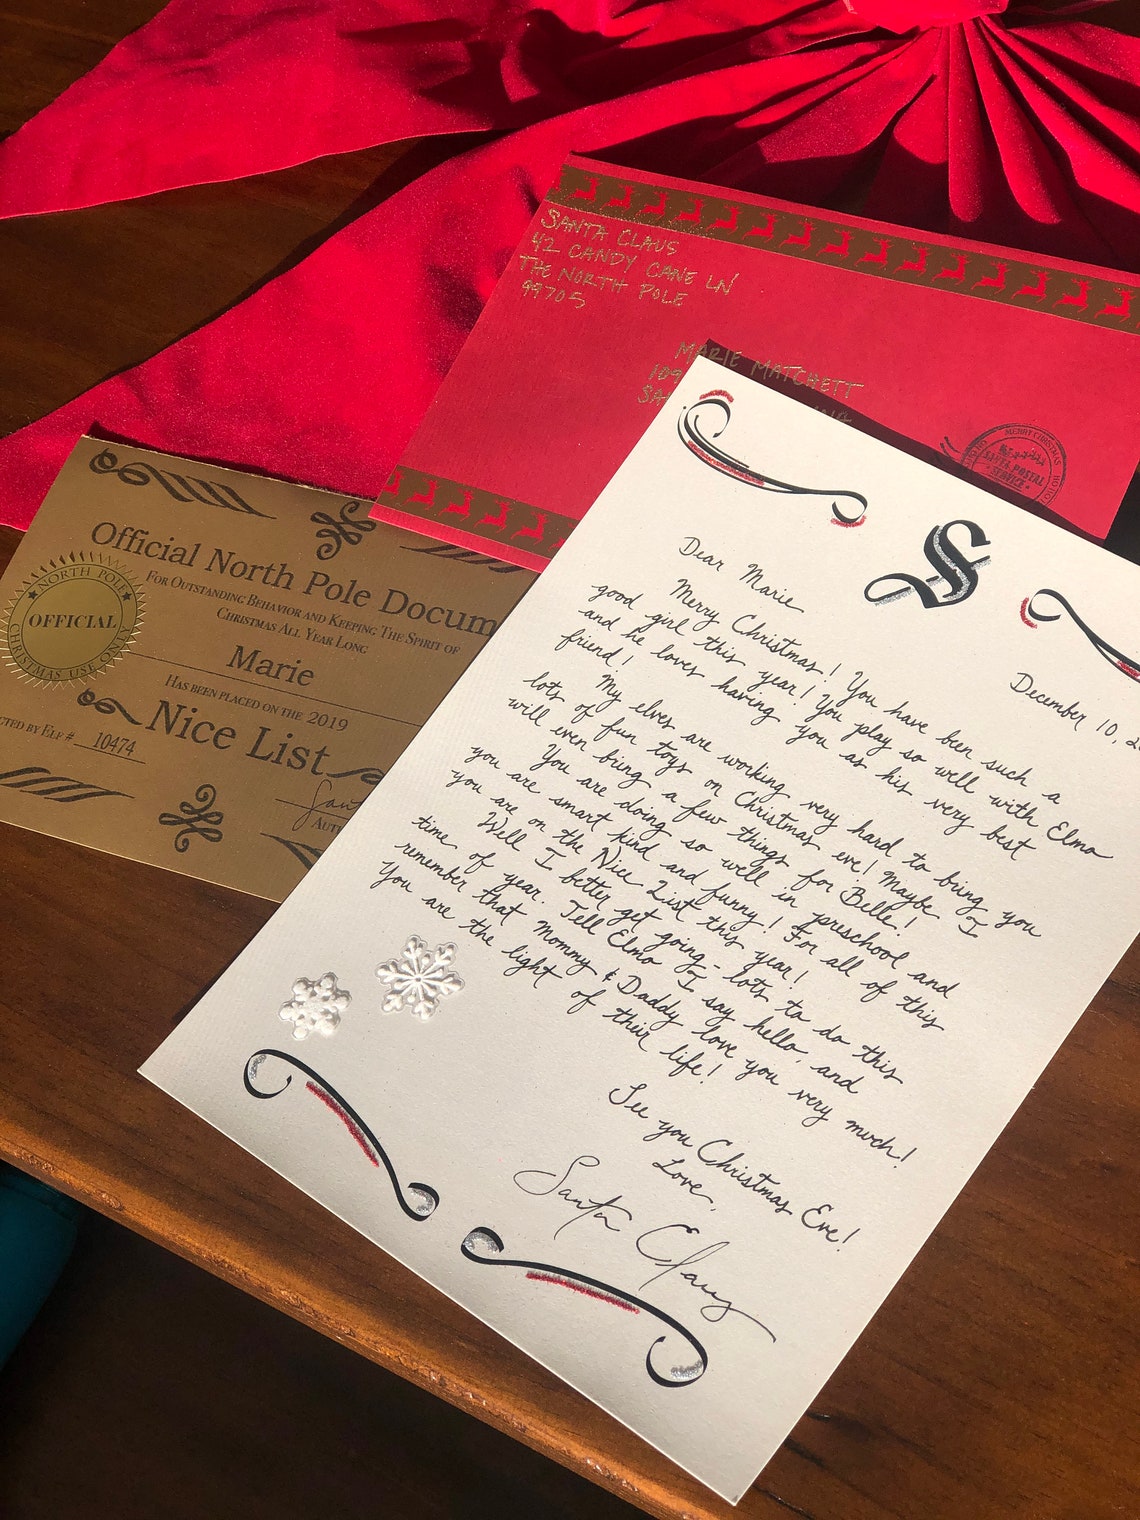 SANTA CLAUS
42 CANDY CANE LN
THE NORTH POLE
99705
MARIE MATCHETT
109
SA
MERRY CHRISTMAS
SANTA POSTAL
SERVICE
HO HO HO
Official North Pole Docum
FOR OUTSTANDING BEHAVIOR AND KEEPING THE SPIRIT OF
CHRISTMAS ALL YEAR LONG
Marie
HAS BEEN PLACED ON THE 2019
Nice List
CTED BY ELF # 10474
Santa
AUT
NORTH POLE
OFFICIAL
CHRISTMAS USE ONLY
S
December 10, 2
Dear Marie
Merry Christmas! You have been such a
good girl this year! You play so well with Elmo
and he loves having you as his very best
friend!
My elves are working very hard to bring you
lots of fun toys on Christmas eve! Maybe I
will even bring a few things for Belle!
You are doing so well in preschool and
you are smart kind and funny! For all of this
you are on the Nice List this year!
Well I better get going - lots to do this
time of year. Tell Elmo I say hello, and
remember that Mommy & Daddy love you very much!
You are the light of their life!
See you Christmas Eve!
Love,
Santa Claus